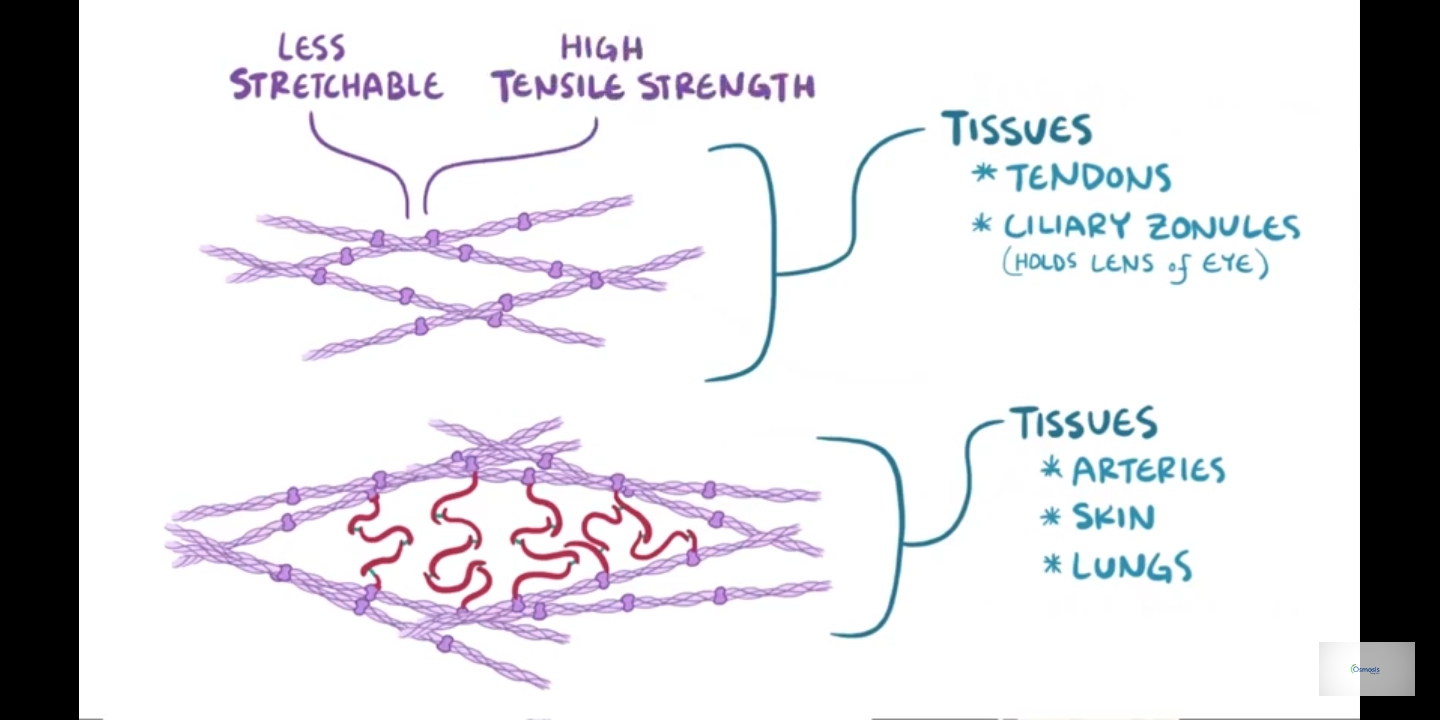 LESS
STRETCHABLE
HIGH
TENSILE STRENGTH
TISSUES
* TENDONS
* CILIARY ZONULES
(HOLDS LENS of EYE)
TISSUES
* ARTERIES
* SKIN
* LUNGS
Osmosis